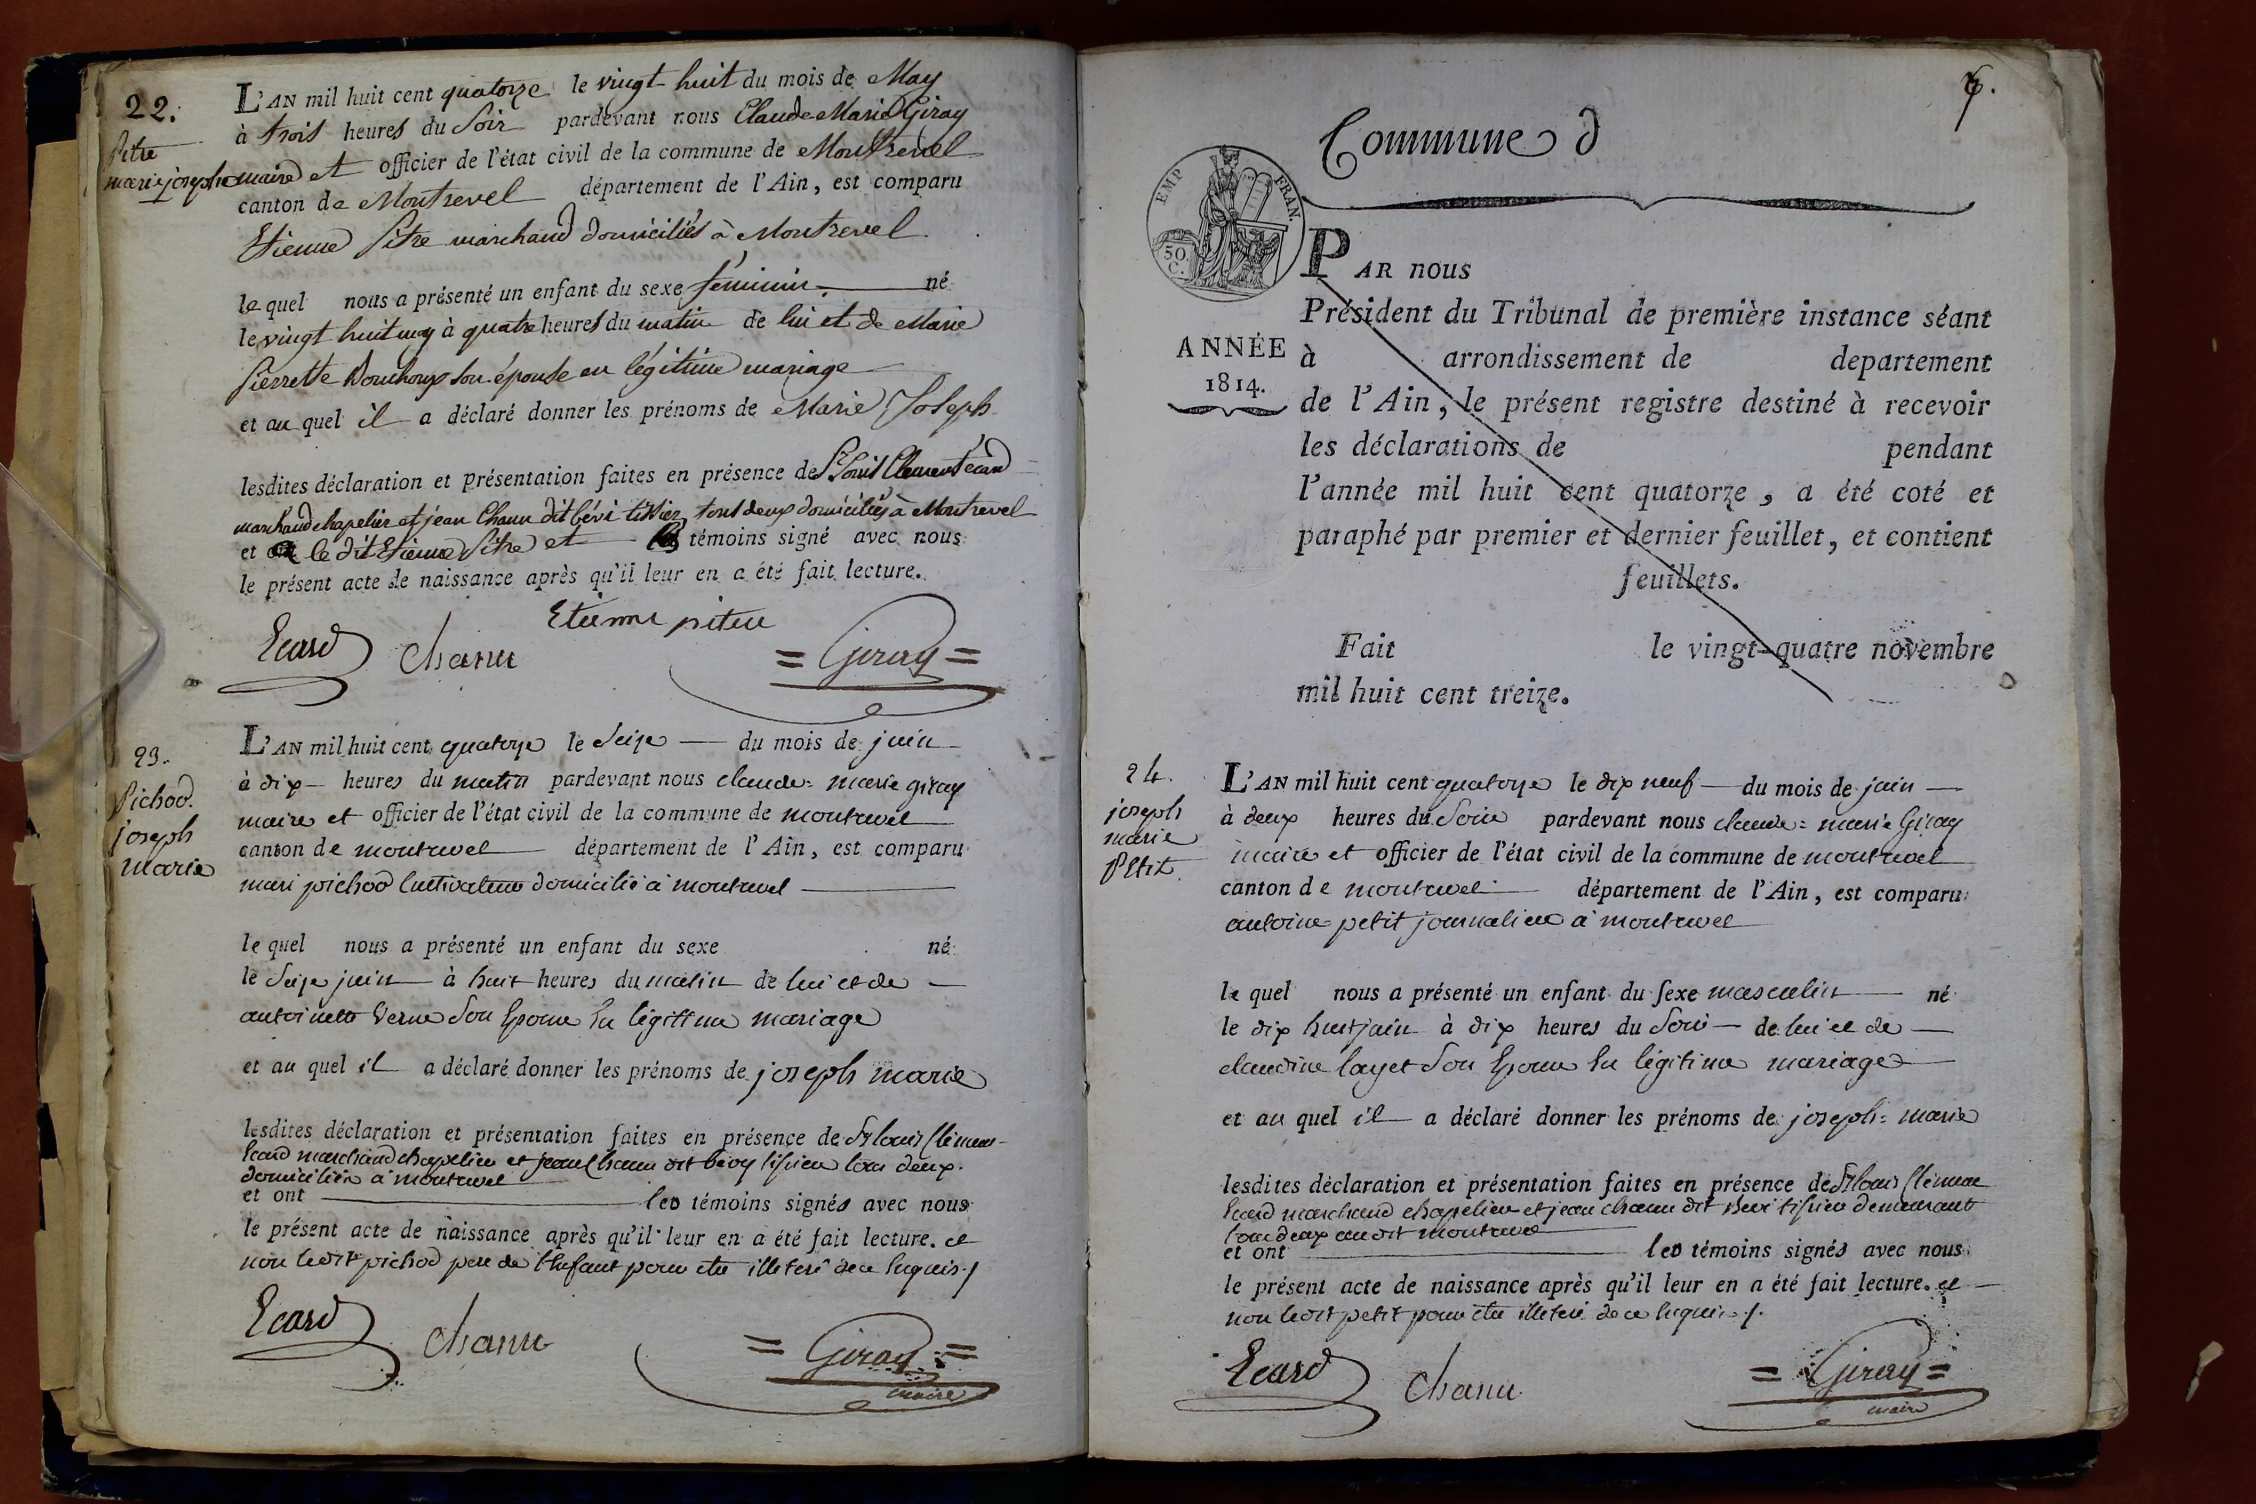 22.
Pitre
marie joseph
L'AN mil huit cent quatorze le vingt-huit du mois de May
à trois heures du Soir pardevant nous Claude Marie Giray
maire et officier de l'état civil de la commune de Montrevel
canton de Montrevel département de l'Ain, est comparu
Etienne Pitre marchand domiciliés à Montrevel
le quel nous a présenté un enfant du sexe féminin né
le vingt huit may à quatre heures du matin de lui et de Marie
Pierrette son épouse en légitime mariage
et au quel il a déclaré donner les prénoms de Marie Joseph
lesdites déclaration et présentation faites en présence de Sr Louis Clement écard
marchand chapelier et jean Chanu dit bévi tissier, tous deux domiciliés à Montrevel
et le dit Etienne Pitre et les témoins signé avec nous
le présent acte de naissance après qu'il leur en a été fait lecture.
Etienne pitre
Ecard chanu = Giray =
23.
Pichod
joseph
marie
L'AN mil huit cent quatorze le Seize du mois de juin
à dix heures du matin pardevant nous claude = marie giray
maire et officier de l'état civil de la commune de montrevel
canton de montrevel département de l'Ain, est comparu
mari pichod Cultivateur domicilié à montrevel
le quel nous a présenté un enfant du sexe né
le Seize juin à huit heures du matin de lui et de
antoinette Verne Son Epouse En légittime mariage
et au quel il a déclaré donner les prénoms de joseph marie
lesdites déclaration et présentation faites en présence de Sr louis Clément
Ecard marchand chapelier et jean Chanu dit bévy tissier tous deux
domiciliés à montrevel
et ont les témoins signés avec nous
le présent acte de naissance après qu'il leur en a été fait lecture. et
non ledit pichod pere de l'Enfant pour etre illiteré de ce Enquis./
Ecard chanu = Giray =
maire
7.
Commune d
EMP FRAN.
50
C.
ANNÉE
1814.
PAR nous
Président du Tribunal de première instance séant
à arrondissement de departement
de l'Ain, le présent registre destiné à recevoir
les déclarations de pendant
l'année mil huit cent quatorze, a été coté et
paraphé par premier et dernier feuillet, et contient
feuillets.
Fait le vingt-quatre novembre
mil huit cent treize.
24.
joseph
marie
Petit
L'AN mil huit cent quatorze le dix neuf du mois de juin
à deux heures du Soir pardevant nous claude = marie Giray
maire et officier de l'état civil de la commune de montrevel
canton de montrevel département de l'Ain, est comparu
antoine petit journalier à montrevel
le quel nous a présenté un enfant du sexe masculin né
le dix huit juin à dix heures du Soir de lui et de
claudine layet Son Epouse En légitime mariage
et au quel il a déclaré donner les prénoms de joseph = marie
lesdites déclaration et présentation faites en présence de Sr louis Clément
Ecard marchand chapelier et jean chanu dit bévi tissier demeurant
tous deux au dit montrevel
et ont les témoins signés avec nous
le présent acte de naissance après qu'il leur en a été fait lecture. et
non ledit petit pour etre illiteré de ce Enquis./.
Ecard chanu = Giray =
maire